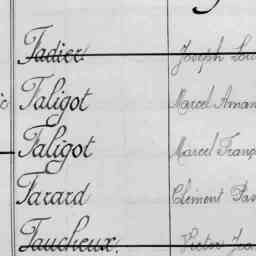 Tadier Joseph
Taligot Marcel
Taligot Marcel
Tarard Clément
Taucheux. Victor